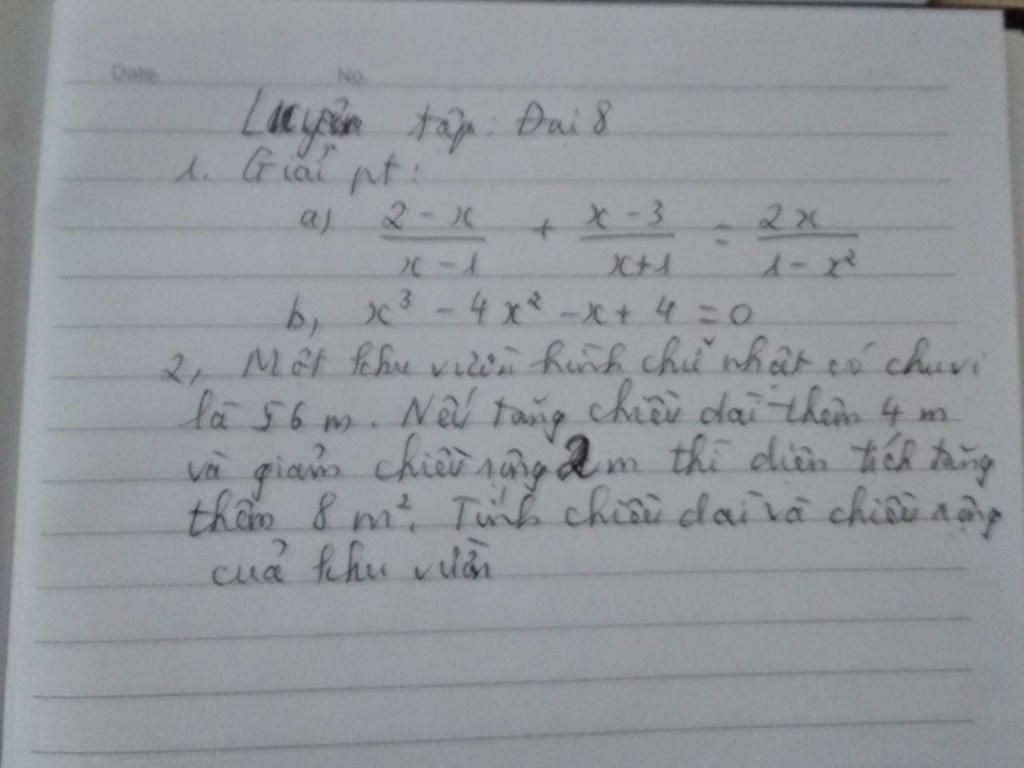 Date No.
Luyện tập: Đai 8
1. Giải pt:
a) \frac{2 - x}{x - 1} + \frac{x - 3}{x + 1} = \frac{2x}{1 - x²}
b, x³ - 4x² - x + 4 = 0
2, Một khu vườn hình chữ nhật có chu vi
là 56 m. Nếu tăng chiều dài thêm 4 m
và giảm chiều rộng 2 m thì diện tích tăng
thêm 8 m². Tính chiều dài và chiều rộng
của khu vườn